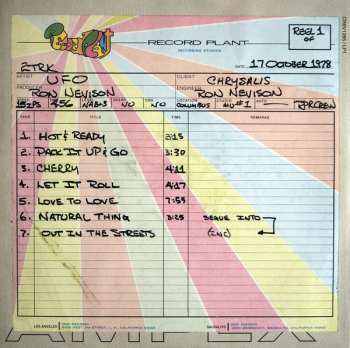 RECORD PLANT
RECORDING STUDIOS
REEL 1
OF
2TRK
DATE 17 OCTOBER 1978
ARTIST UFO
CLIENT CHRYSALIS
PRODUCER RON NEVISON
RON NEVISON
15 IPS 456 NAB NO NO
LOCATION COLUMBUS STUDIO MU#1 RPRCREW
TAKE TITLE TIME REMARKS
1. HOT & READY 3:15
2. PACK IT UP & GO 3:30
3. CHERRY 4:11
4. LET IT ROLL 4:17
5. LOVE TO LOVE 7:55
6. NATURAL THING 3:25 SEGUE INTO
7. OUT IN THE STREETS (INC)
LOS ANGELES
SAUSALITO
AMPEX